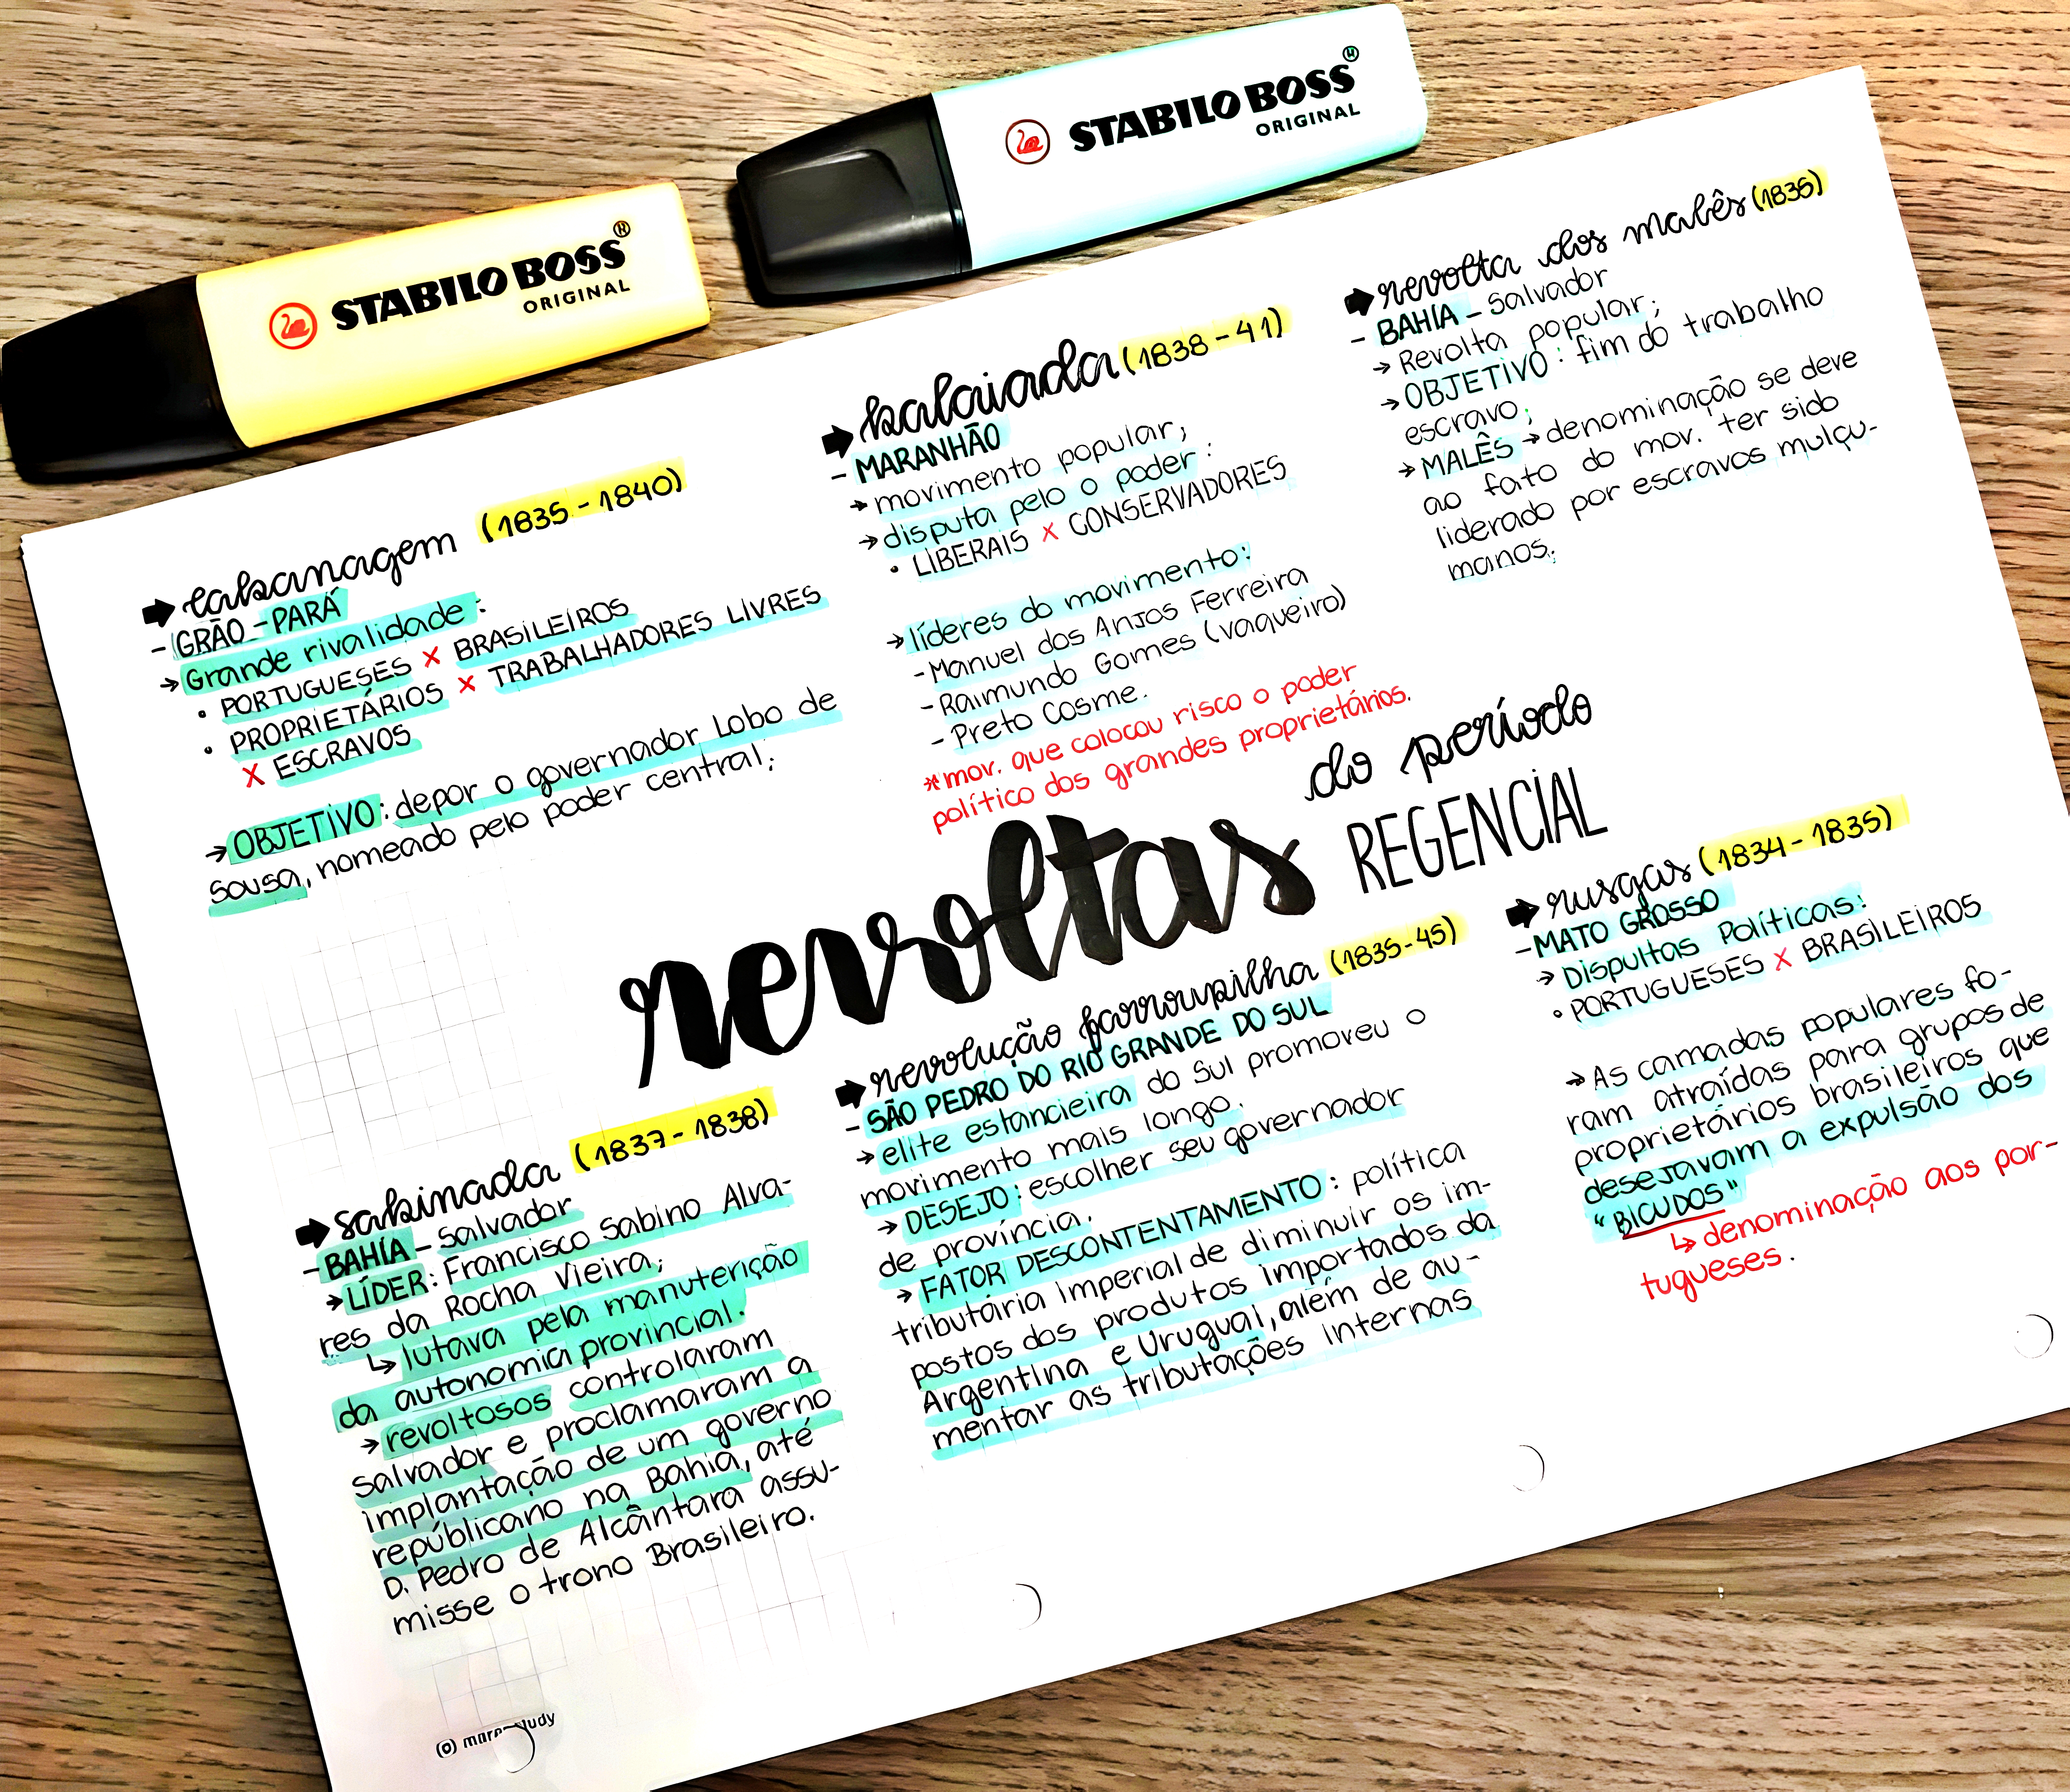 STABILO BOSS®
ORIGINAL
STABILO BOSS®
ORIGINAL
cabanagem (1835 - 1840)
- GRÃO - PARÁ
→ Grande rivalidade:
• PORTUGUESES X BRASILEIROS
• PROPRIETÁRIOS X TRABALHADORES LIVRES
X ESCRAVOS
→ OBJETIVO: depor o governador Lobo de
Sousa, nomeado pelo poder central;
balaiada (1838 - 41)
- MARANHÃO
→ movimento popular;
→ disputa pelo o poder:
• LIBERAIS X CONSERVADORES
→ líderes do movimento:
- Manuel dos Anjos Ferreira
- Raimundo Gomes (vaqueiro)
- Preto Cosme.
*mov. que colocou risco o poder
político dos grandes proprietários.
revolta dos malês (1835)
- BAHIA - Salvador
→ Revolta popular;
→ OBJETIVO: fim do trabalho
escravo;
→ MALÊS → denominação se deve
ao fato do mov. ter sido
liderado por escravos mulçu-
manos;
revoltas do período
REGENCIAL
sabinada (1837 - 1838)
- BAHIA - Salvador
→ LÍDER: Francisco Sabino Alva-
res da Rocha Vieira;
↳ lutava pela manutenção
da autonomia provincial.
→ revoltosos controlaram
Salvador e proclamaram a
implantação de um governo
repúblicano na Bahia, até
D. Pedro de Alcântara assu-
misse o trono Brasileiro.
revolução farroupilha (1835-45)
- SÃO PEDRO DO RIO GRANDE DO SUL
→ elite estancieira do Sul promoveu o
movimento mais longo.
→ DESEJO: escolher seu governador
de província.
→ FATOR DESCONTENTAMENTO: política
tributária imperial de diminuir os im-
postos dos produtos importados da
Argentina e Uruguai, além de au-
mentar as tributações internas
rusgas (1834 - 1835)
- MATO GROSSO
→ Dispultas Políticas:
• PORTUGUESES X BRASILEIROS
→ As camadas populares fo-
ram atraídas para grupos de
proprietários brasileiros que
desejavam a expulsão dos
"BICUDOS"
↳ denominação aos por-
tugueses.